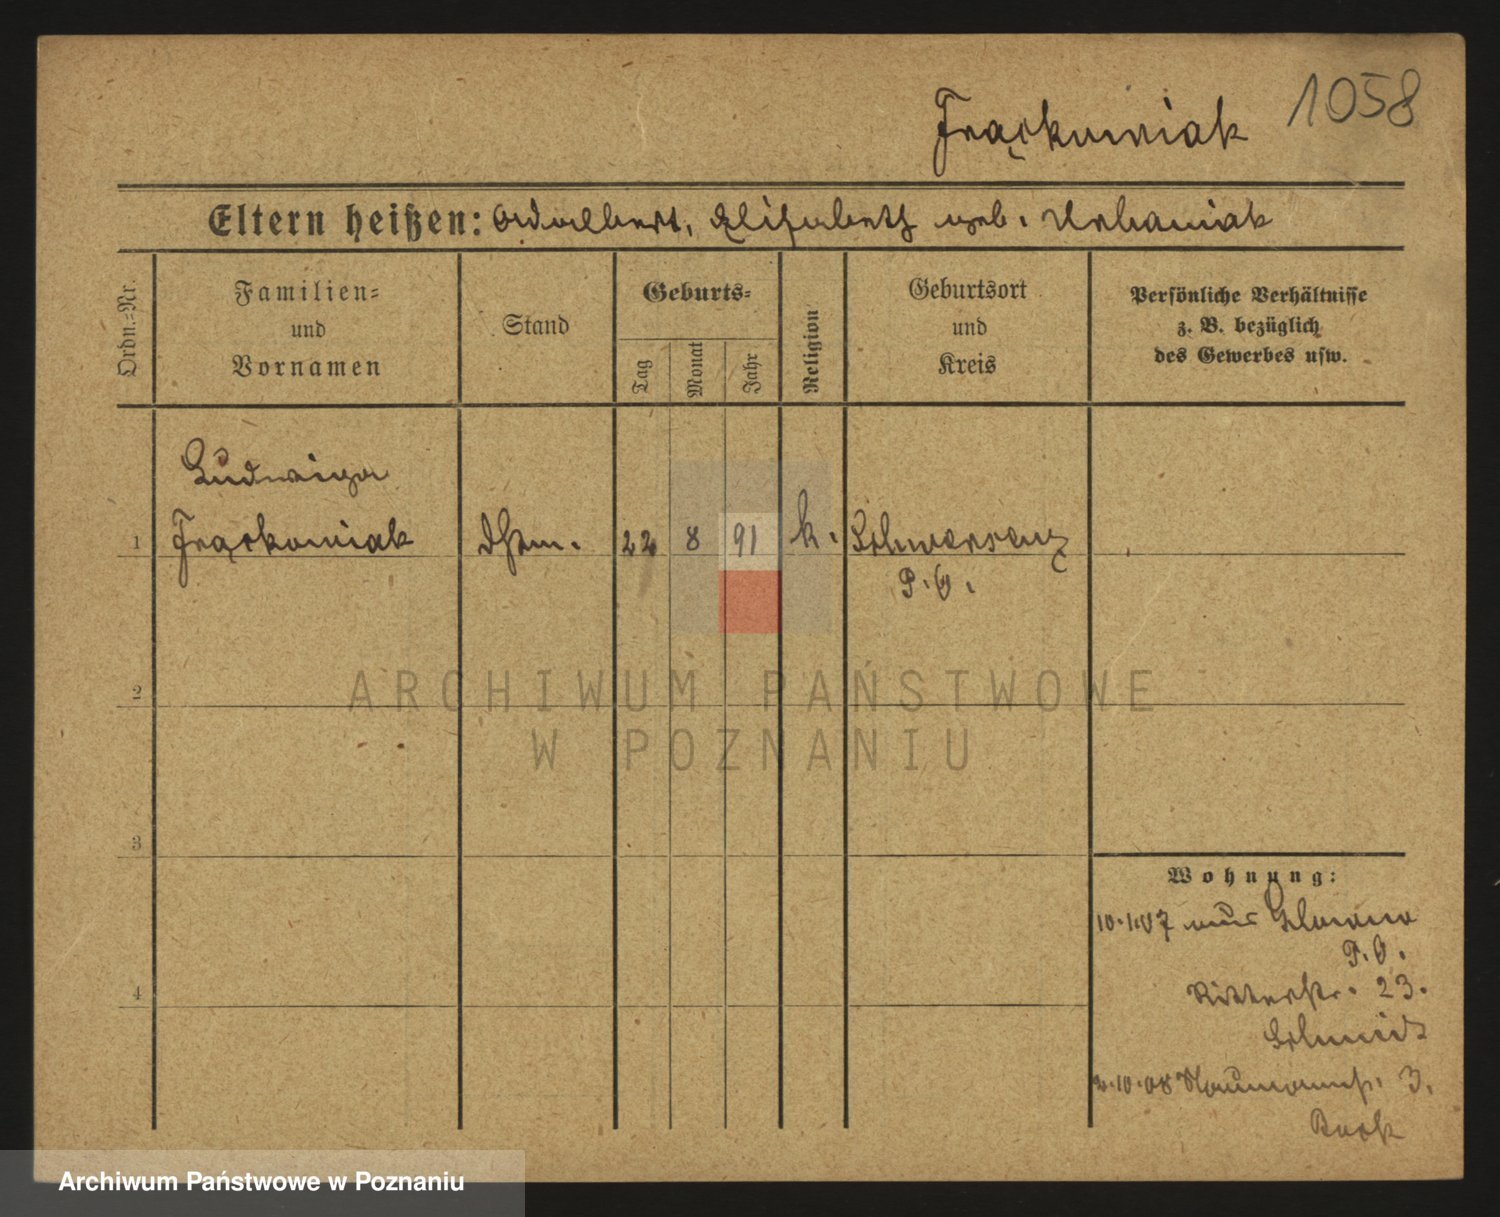 1058
Frąckowiak
Eltern heißen: Adalbert, Elisabeth geb. Urbaniak
Ordn.-Nr.
Familien-
und
Vornamen
Stand
Geburts-
Tag
Monat
Jahr
Religion
Geburtsort
und
Kreis
Persönliche Verhältnisse
z. B. bezüglich
des Gewerbes usw.
Ludwiga
1 Frąckowiak Dstm. 22 8 91 k. Schwersenz
P. O.
2
3
4
Wohnung:
10.1.07 aus
P. O.
Ritterstr. 23.
Schmidt
2.10.08 Naumannstr. 3.
ARCHIWUM PAŃSTWOWE
W POZNANIU
Archiwum Państwowe w Poznaniu